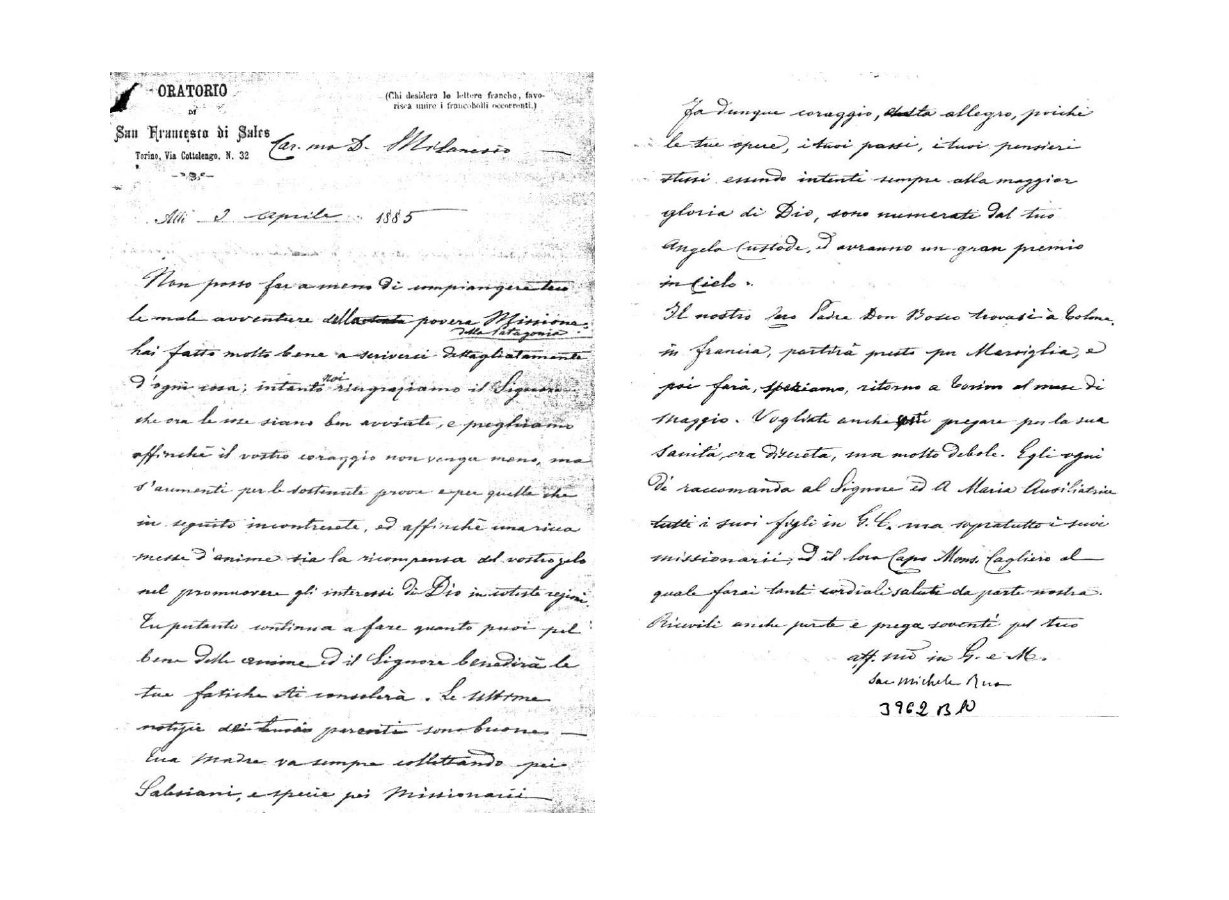 ORATORIO
DI
San Francesco di Sales
Torino, Via Cottolengo, N. 32
(Chi desidera le lettere franche, favo-
risca unire i francobolli occorrenti.)
Car.mo D. Milanesio
Alli 3 Aprile 1885
Non posso far a meno di compiangere teco
le male avventure della povera Missione
della Patagonia
hai fatto molto bene a scriverci dettagliatamente
d'ogni cosa; intanto noi ringraziamo il Signore
che ora le cose siano ben avviate, e preghiamo
affinchè il vostro coraggio non venga meno, ma
s'aumenti per le sostenute prove e per quelle che
in seguito incontrerete, ed affinchè una ricca
messe d'anime sia la ricompensa del vostro zelo
nel promuovere gli interessi di Dio in coteste regioni.
Tu pertanto continua a fare quanto puoi pel
bene delle anime ed il Signore benedirà le
tue fatiche e ti consolerà. Le ultime
notizie dei tuoi parenti sono buone —
Tua madre va sempre collettando pei
Salesiani, e specie pei Missionarii
Fa dunque coraggio, sta allegro, poichè
le tue opere, i tuoi passi, i tuoi pensieri
stessi essendo intenti sempre alla maggior
gloria di Dio, sono numerati dal tuo
Angelo Custode, ed avranno un gran premio
in Cielo.
Il nostro caro Padre Don Bosco trovasi a Tolone
in francia, partirà presto per Marsiglia, e
poi farà, speriamo, ritorno a Torino al mese di
Maggio. Vogliate anche pregare per la sua
sanità, ora discreta, ma molto debole. Egli ogni
dì raccomanda al Signore ed A Maria Ausiliatrice
tutti i suoi figli in G. C. ma sopratutto i suoi
missionarii, ed il loro Capo Mons. Cagliero al
quale farai tanti cordiali saluti da parte nostra.
Ricevili anche per te e prega sovente pel tuo
aff.mo in G. e M.
Sac Michele Rua
3962 B